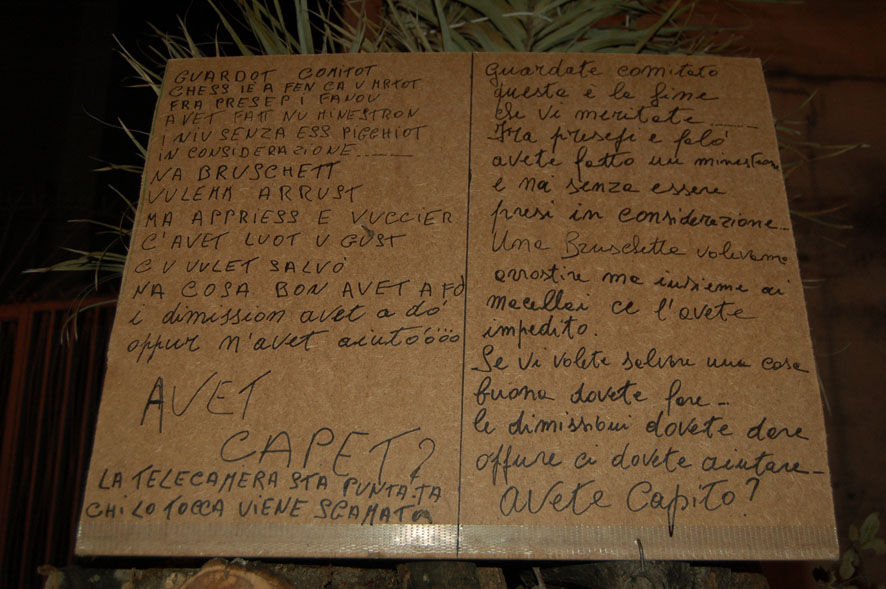 GUARDOT COMITOT
CHESS IE A FEN CA V MRTOT
FRA PRESEP I FANOU
AVET FATT NU MINESTRON
I NIU SENZA ESS PIGGHIOT
IN CONSIDERAZIONE......
NA BRUSCHETT
VULEMM ARRUST
MA APPRIESS E VUCCIER
C'AVET LUOT U GUST
C V VULET SALVÓ
NA COSA BON AVET A FÓ
i dimission avet a dó
oppur n'avet aiutóööö
AVET
CAPET?
LA TELECAMERA STA PUNTATA
CHI LO TOCCA VIENE SGAMATO
Guardate comitato
questa è la fine
che vi meritate......
Fra presepi e falò
avete fatto un minestrone
e noi senza essere
presi in considerazione...
Una Bruschetta volevamo
arrostire ma insieme ai
macellai ce l'avete
impedito.
Se vi volete salvare una cosa
buona dovete fare...
le dimissioni dovete dare
oppure ci dovete aiutare...
AVETE Capito?